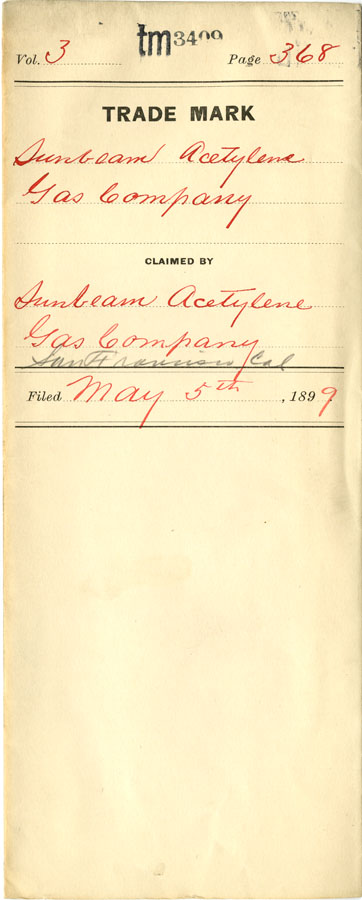 Vol. 3 tm3409 Page 368
TRADE MARK
Sunbeam Acetylene
Gas Company
CLAIMED BY
Sunbeam Acetylene
Gas Company
San Francisco Cal
Filed May 5th, 1899